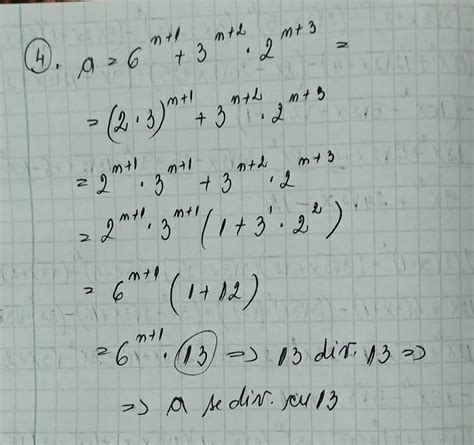 4. a = 6^(n+1) + 3^(n+2) · 2^(n+3) =
= (2·3)^(n+1) + 3^(n+2) · 2^(n+3)
= 2^(n+1) · 3^(n+1) + 3^(n+2) · 2^(n+3)
= 2^(n+1) · 3^(n+1) (1 + 3^1 · 2^2)
= 6^(n+1) (1+12)
= 6^(n+1) · 13 => 13 div. 13 =>
=> a se div. cu 13